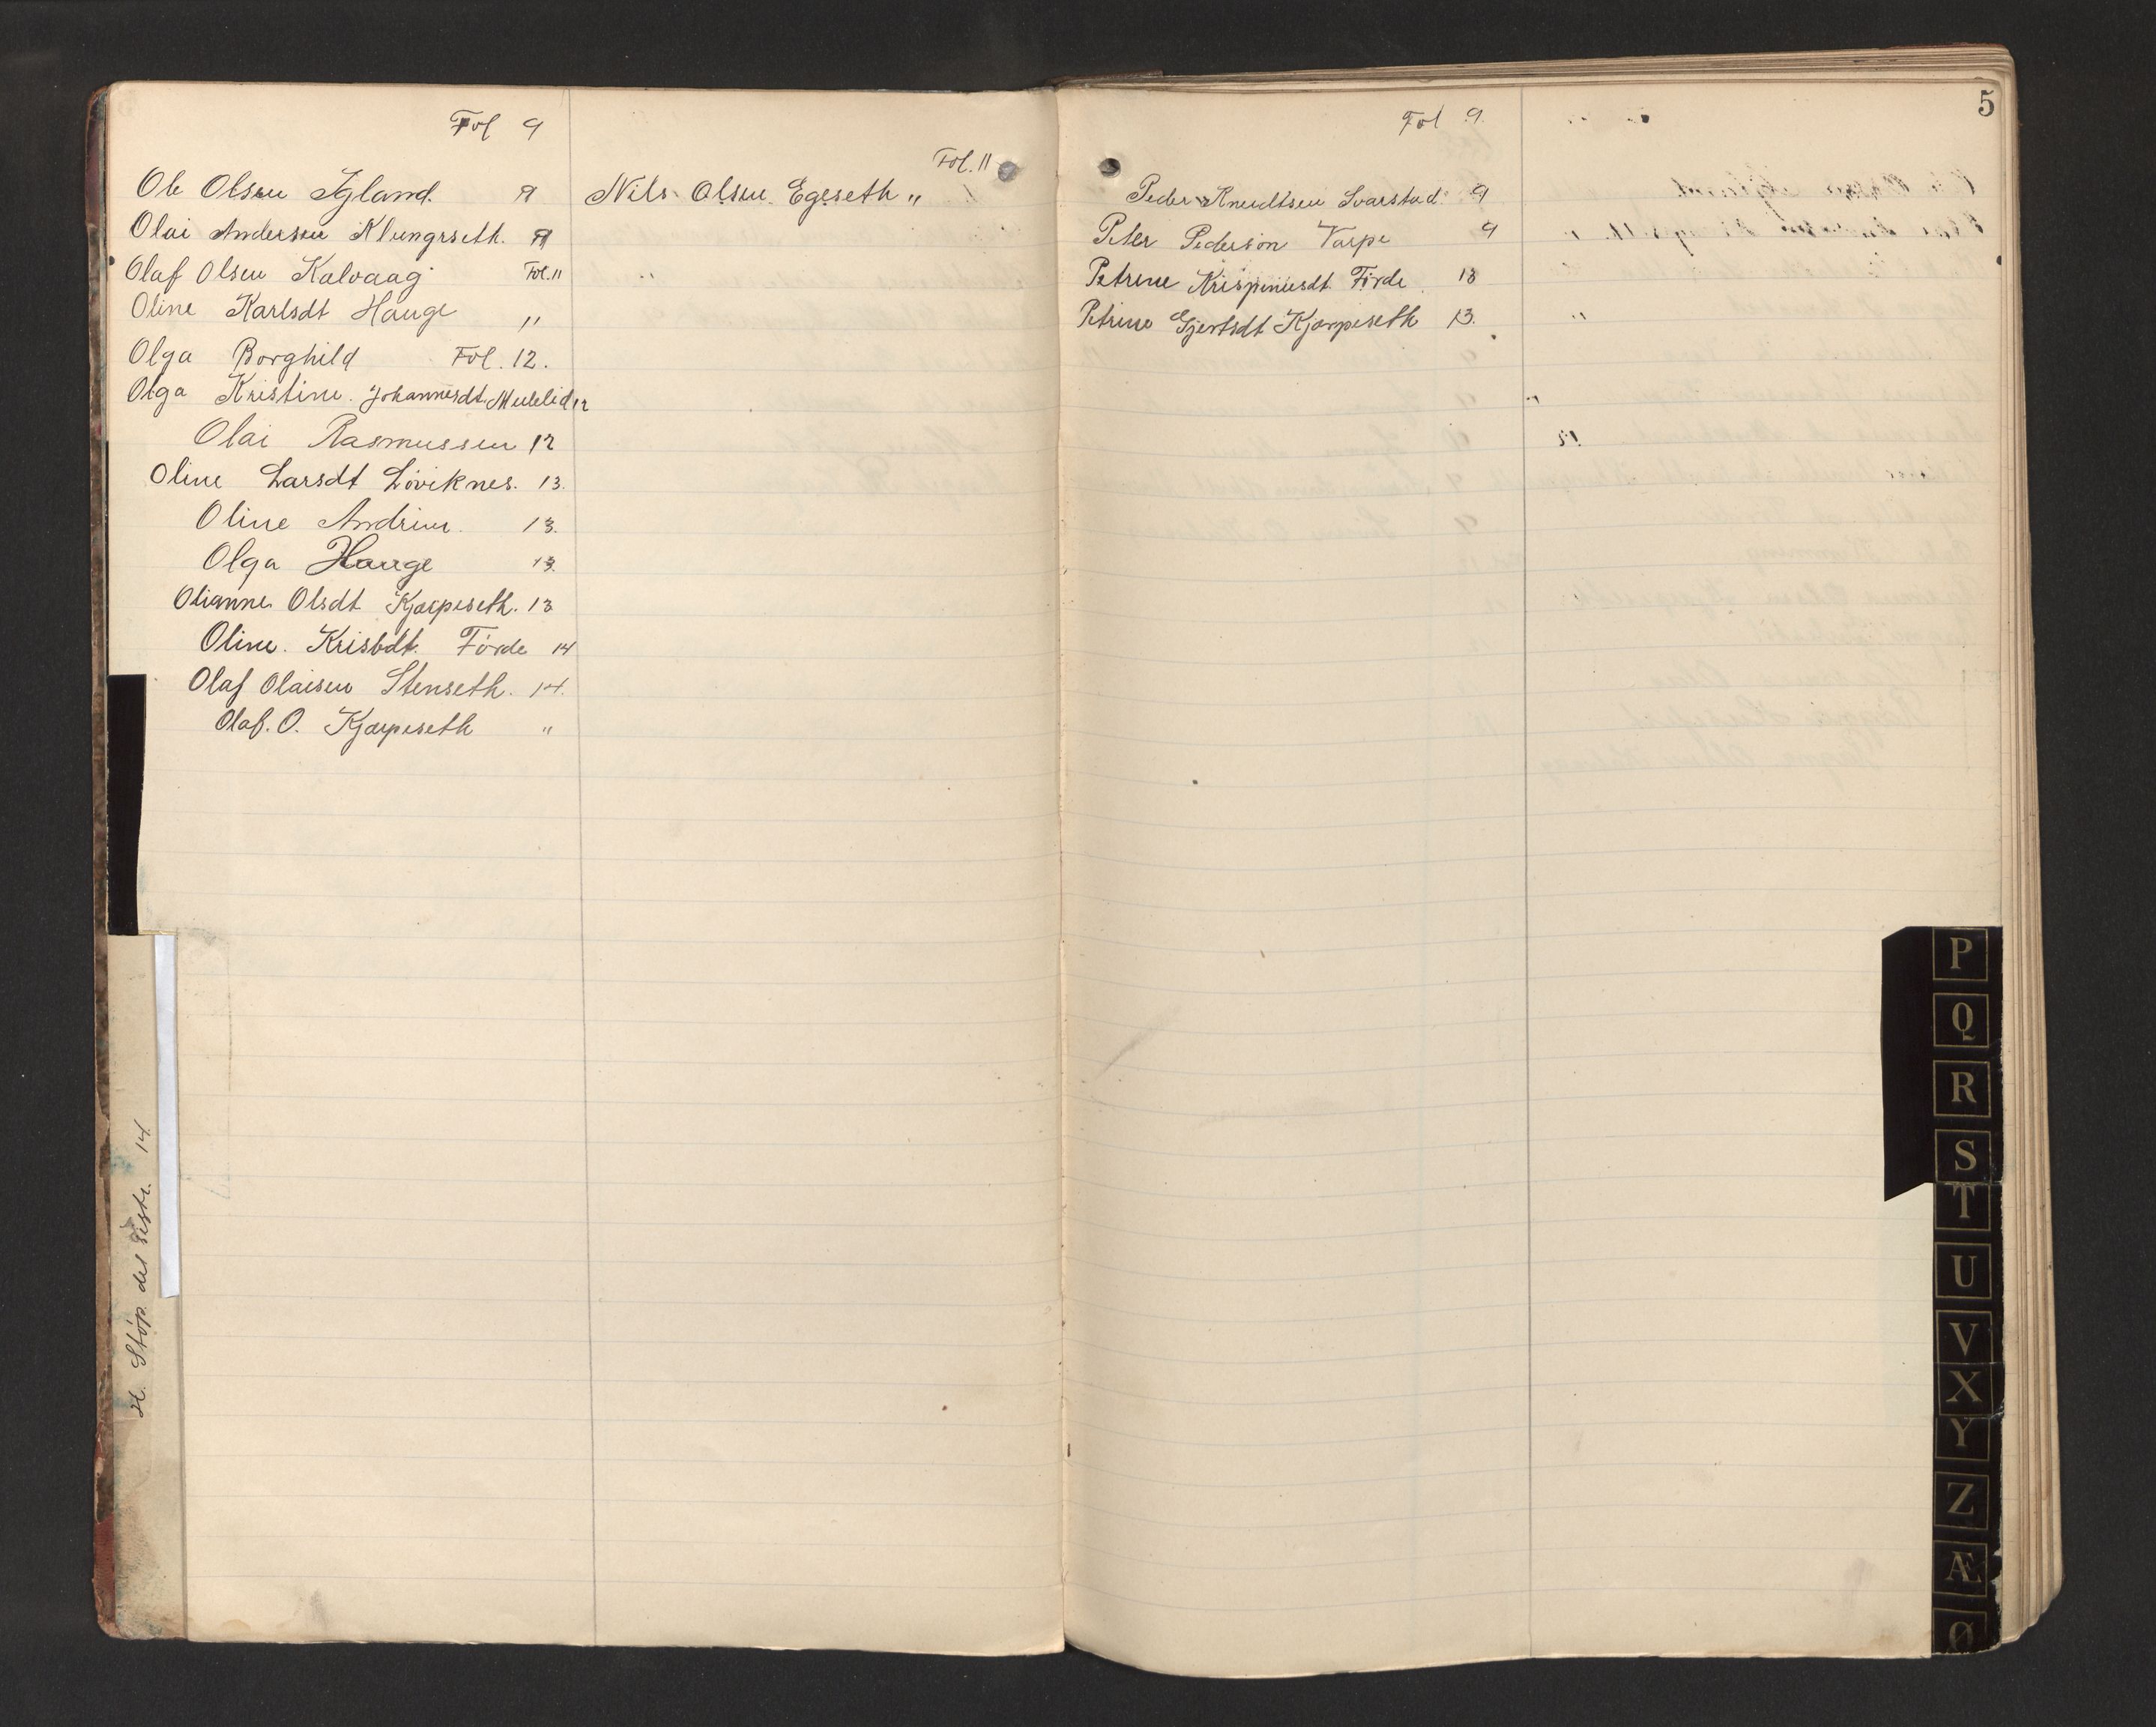 Fol 9
Ole Olsen Igland. 9
Olai Andersen Klungrseth. 9
Olaf Olsen Kalvaag Fol. 11
Oline Karlsdt Hauge "
Olga Borghild Fol. 12.
Olga Kristine. Johannesdt. Mulelid 12
Olai Rasmussen 12
Oline Larsdt Löviknes. 13.
Oline Andrine. 13.
Olga Hauge 13.
Olianne Olsdt Kjærpeseth. 13
Oline. Kristdt. Förde 14
Olaf Olaisen Stenseth. 14.
Olaf. O. Kjærpeseth "
Fol. 11
Nils Olsen Egeseth "
H. Støp. del sistr. 14
5
Fol 9.
Peder Knudtsen Svarstad 9
Peter Pederson Varpe 9
Petrine Krispiniusdt. Förde 13
Petrine Gjertsdt Kjærpeseth 13.
P
Q
R
S
T
U
V
X
Y
Z
Æ
Ø